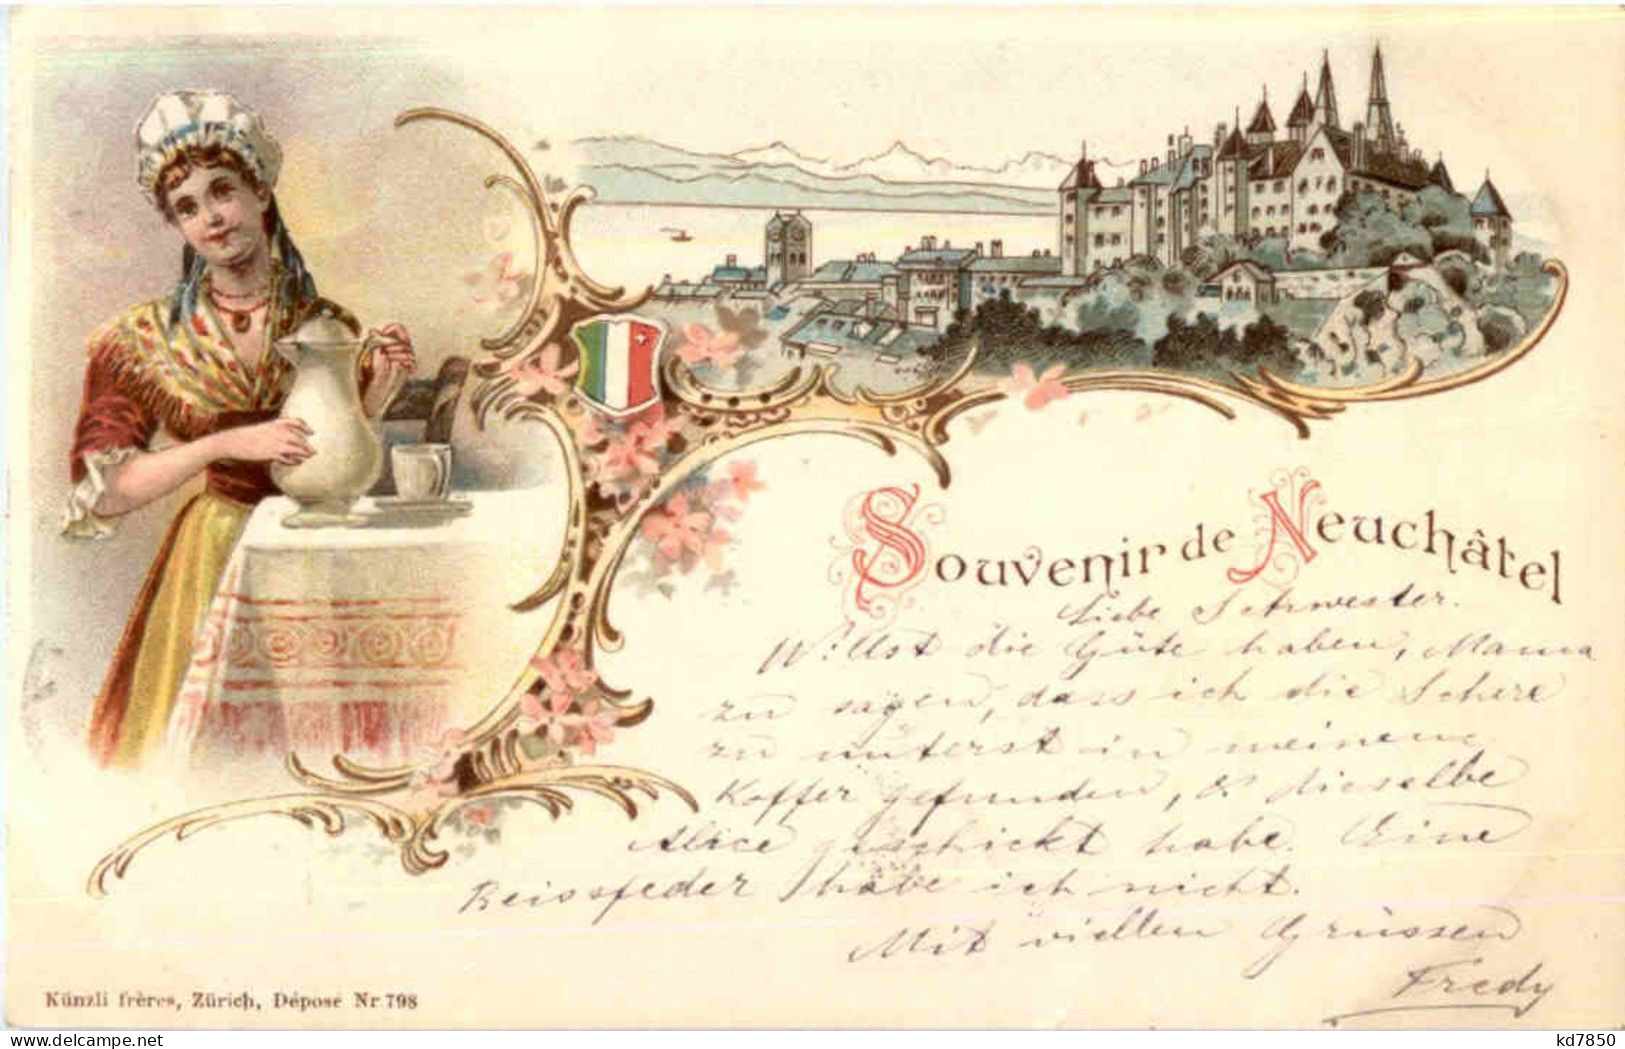 Souvenir de Neuchâtel
Liebe Schwester.
Willst die Güte haben, Mama
zu sagen, dass ich die Schere
zu unterst in meinem
Koffer gefunden, & dieselbe
Alice geschickt habe. Eine
Reissfeder habe ich nicht.
Mit viellen Grüssen
Fredy
Künzli frères, Zürich, Déposé Nr 798
kd7850